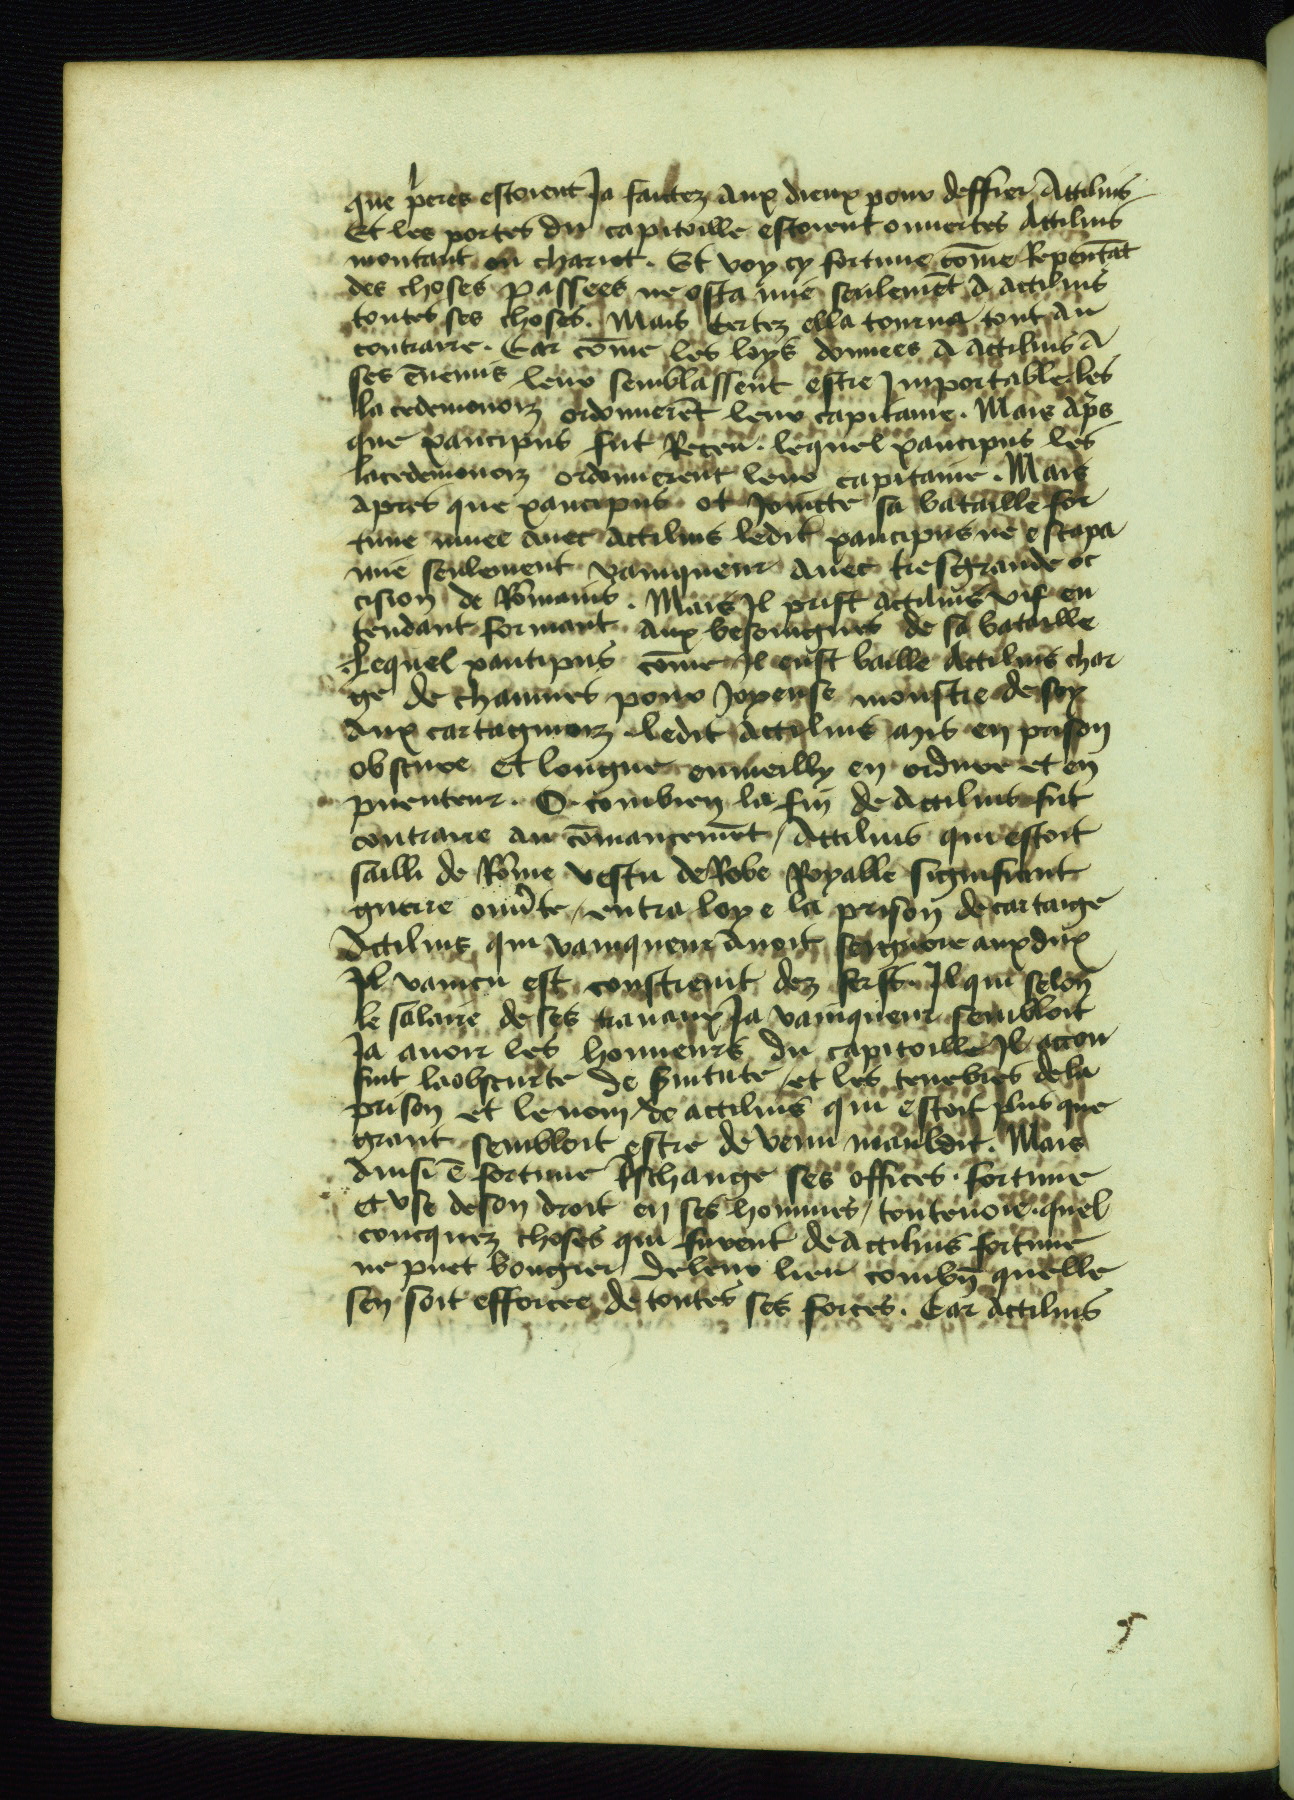 que p̃eres estoient Ja faictez aux dieux pour deffier Attilius
Et les portes du capitoille estoient ouuertes Attilius
montant ou chariot. Et voy cy fortune cõme Repentãt
des choses passees ne osta mie seulemẽt A actilius
toutes ses choses. Mais certez ella tourna tout Au
contraire. Car cõme les loys donnees A Actilius A
ses ẽnemis leur semblassent estre Importables les
lacedemonoiz ordonnerẽt leur capitaine. Mais Ap̃s
que xancipus fut Receu. lequel xancipus les
lacedemonoiz ordonnerent leur capitaine. Mais
Apres que xancipus ot Joincte sa bataille for
tune muee auec Actilius ledit xancipus ne escapa
mie seulement vainqueur Auec tresgrande oc
cision de Rõmains. Mais Jl prist actilius vif en
tendant formant aux besoingnes de sa bataille
Lequel xantipus cõme Jl eust baille Attilius char
ge de chainnes pour Joyeuse monstre de soy
aux cartaginoiz. ledit Actilius mis en prison
obscure Et longue enuieilly en ordure et en
puenteur. O combien la fin de Actilius fut
contraire au cõmancemẽt / Attilius qui estoit
sailli de Rõme vestu de Robe Royalle signifiant
guerre ouũte / entra loye la prison de cartaige
Actilius qui vainqueur Auoit seignore aux dux
Jl vaincu est constreint dez fers. Jl qui selon
le salaire de ses trauaux Ja vainqueur sembloit
Ja auoir les honneurs du capitoille Jl accon
suit laobscurte de suitute / et les tenebres de la
prison et le nom de actilius qui estoit plus que
grant sembloit estre de venu mauldit. Mais
Ainsi ẽ fortune schange ses offices. fortune
Et vse de son droit en ses hommes / toutenoie. quel
concquez choses qui furent de Actilius fortune
ne puet bougier de leur lieu combñ quelle
sen soit efforcee de toutes ses forces. Car Actilius